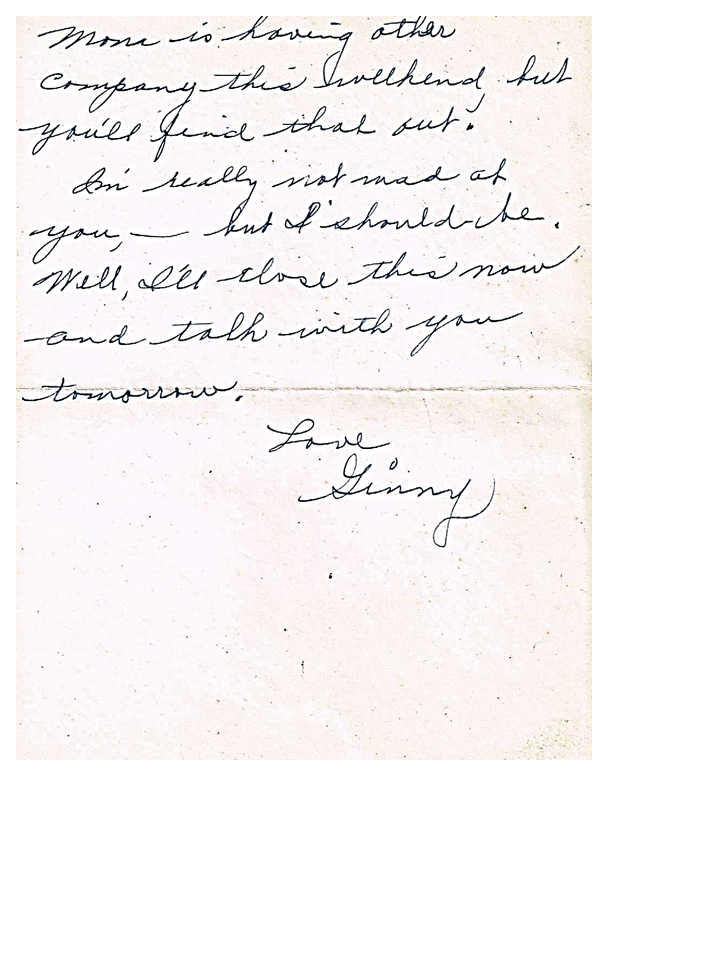 Mona is having other
company this weekend, but
you'll find that out!
I'm really not mad at
you, — but I should be.
Well, I'll close this now
and talk with you
tomorrow.
Love
Ginny